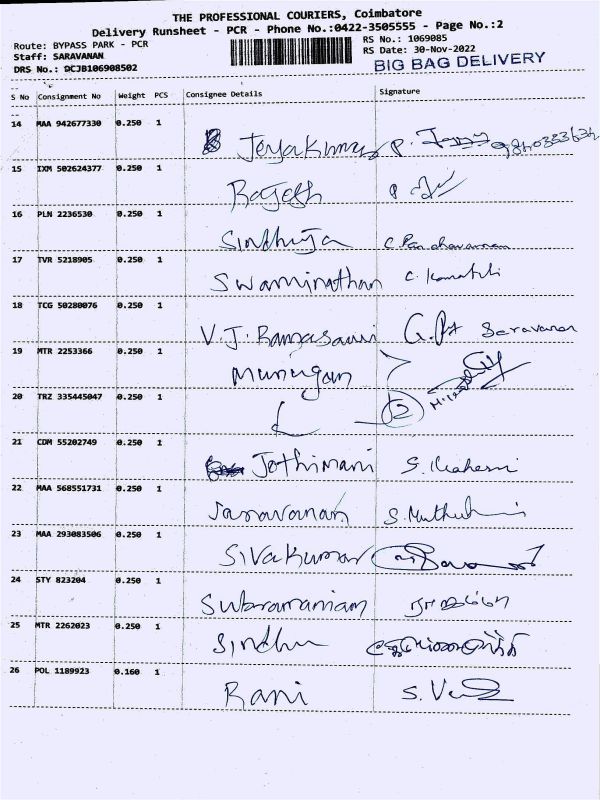 THE PROFESSIONAL COURIERS, Coimbatore
Delivery Runsheet - PCR - Phone No.:0422-3505555 - Page No.:2
Route: BYPASS PARK - PCR RS No.: 1069085
Staff: SARAVANAN RS Date: 30-Nov-2022
DRS No.: DCJB106908502 BIG BAG DELIVERY
S No Consignment No Weight PCS Consignee Details Signature
14 MAA 942677330 0.250 1
Jeyakumar P.
15 IXM 502624377 0.250 1
Rajesh P
16 PLN 2236530 0.250 1
Sindhuja C Panchavarnam
17 TVR 5218905 0.250 1
Swaminathan C. Kamatchi
18 TCG 50280076 0.250 1
V.J. Ramasami Saravanan
19 MTR 2253366 0.250 1
Murugan
20 TRZ 335445047 0.250 1
2
21 CDM 55202749 0.250 1
Jothimani S.
22 MAA 568551731 0.250 1
Saravanan S.
23 MAA 293083506 0.250 1
Sivakumar
24 STY 823204 0.250 1
Subramaniam
25 MTR 2262023 0.250 1
Sindhu
26 POL 1189923 0.160 1
Rani S.